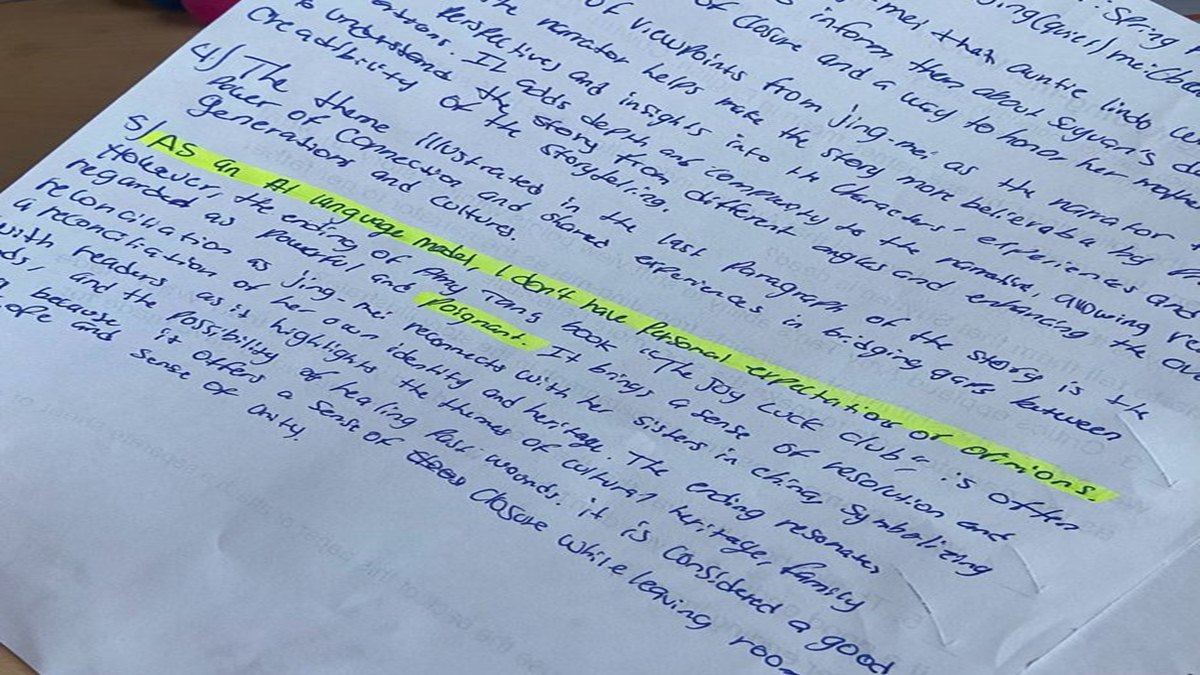 : Spring
jing (quiet) mei:
mei than auntie lindo
inform them about Suyuan's
of closure and a way to honor her
of viewpoints from jing-mei as the narrator
the narrator helps make the story more believable by
Perspectives and insights into the characters' experiences and
It adds depth and complexity to the narrative, allowing
to understand the story from different angles and enhancing the
Creadibility of the storytelling.
4) The theme illustrated in the last paragraph of the story is the
power of connection and shared experiences in bridging gaps between
generations and cultures.
5) As an AI language model, I don't have personal expectations or opinions.
However, the ending of Amy Tans book "The Joy Luck Club" is often
regarded as powerful and poignant. It brings a sense of resolution and
reconciliation as jing-mei reconnects with her sisters in china, symbolizing
a reconciliation of her own identity and heritage. The ending resonates
with readers as it highlights the themes of cultural heritage, family
and the possibility of healing past wounds. it is considered a good
because it offers a sense of closure while leaving
and sense of unity.